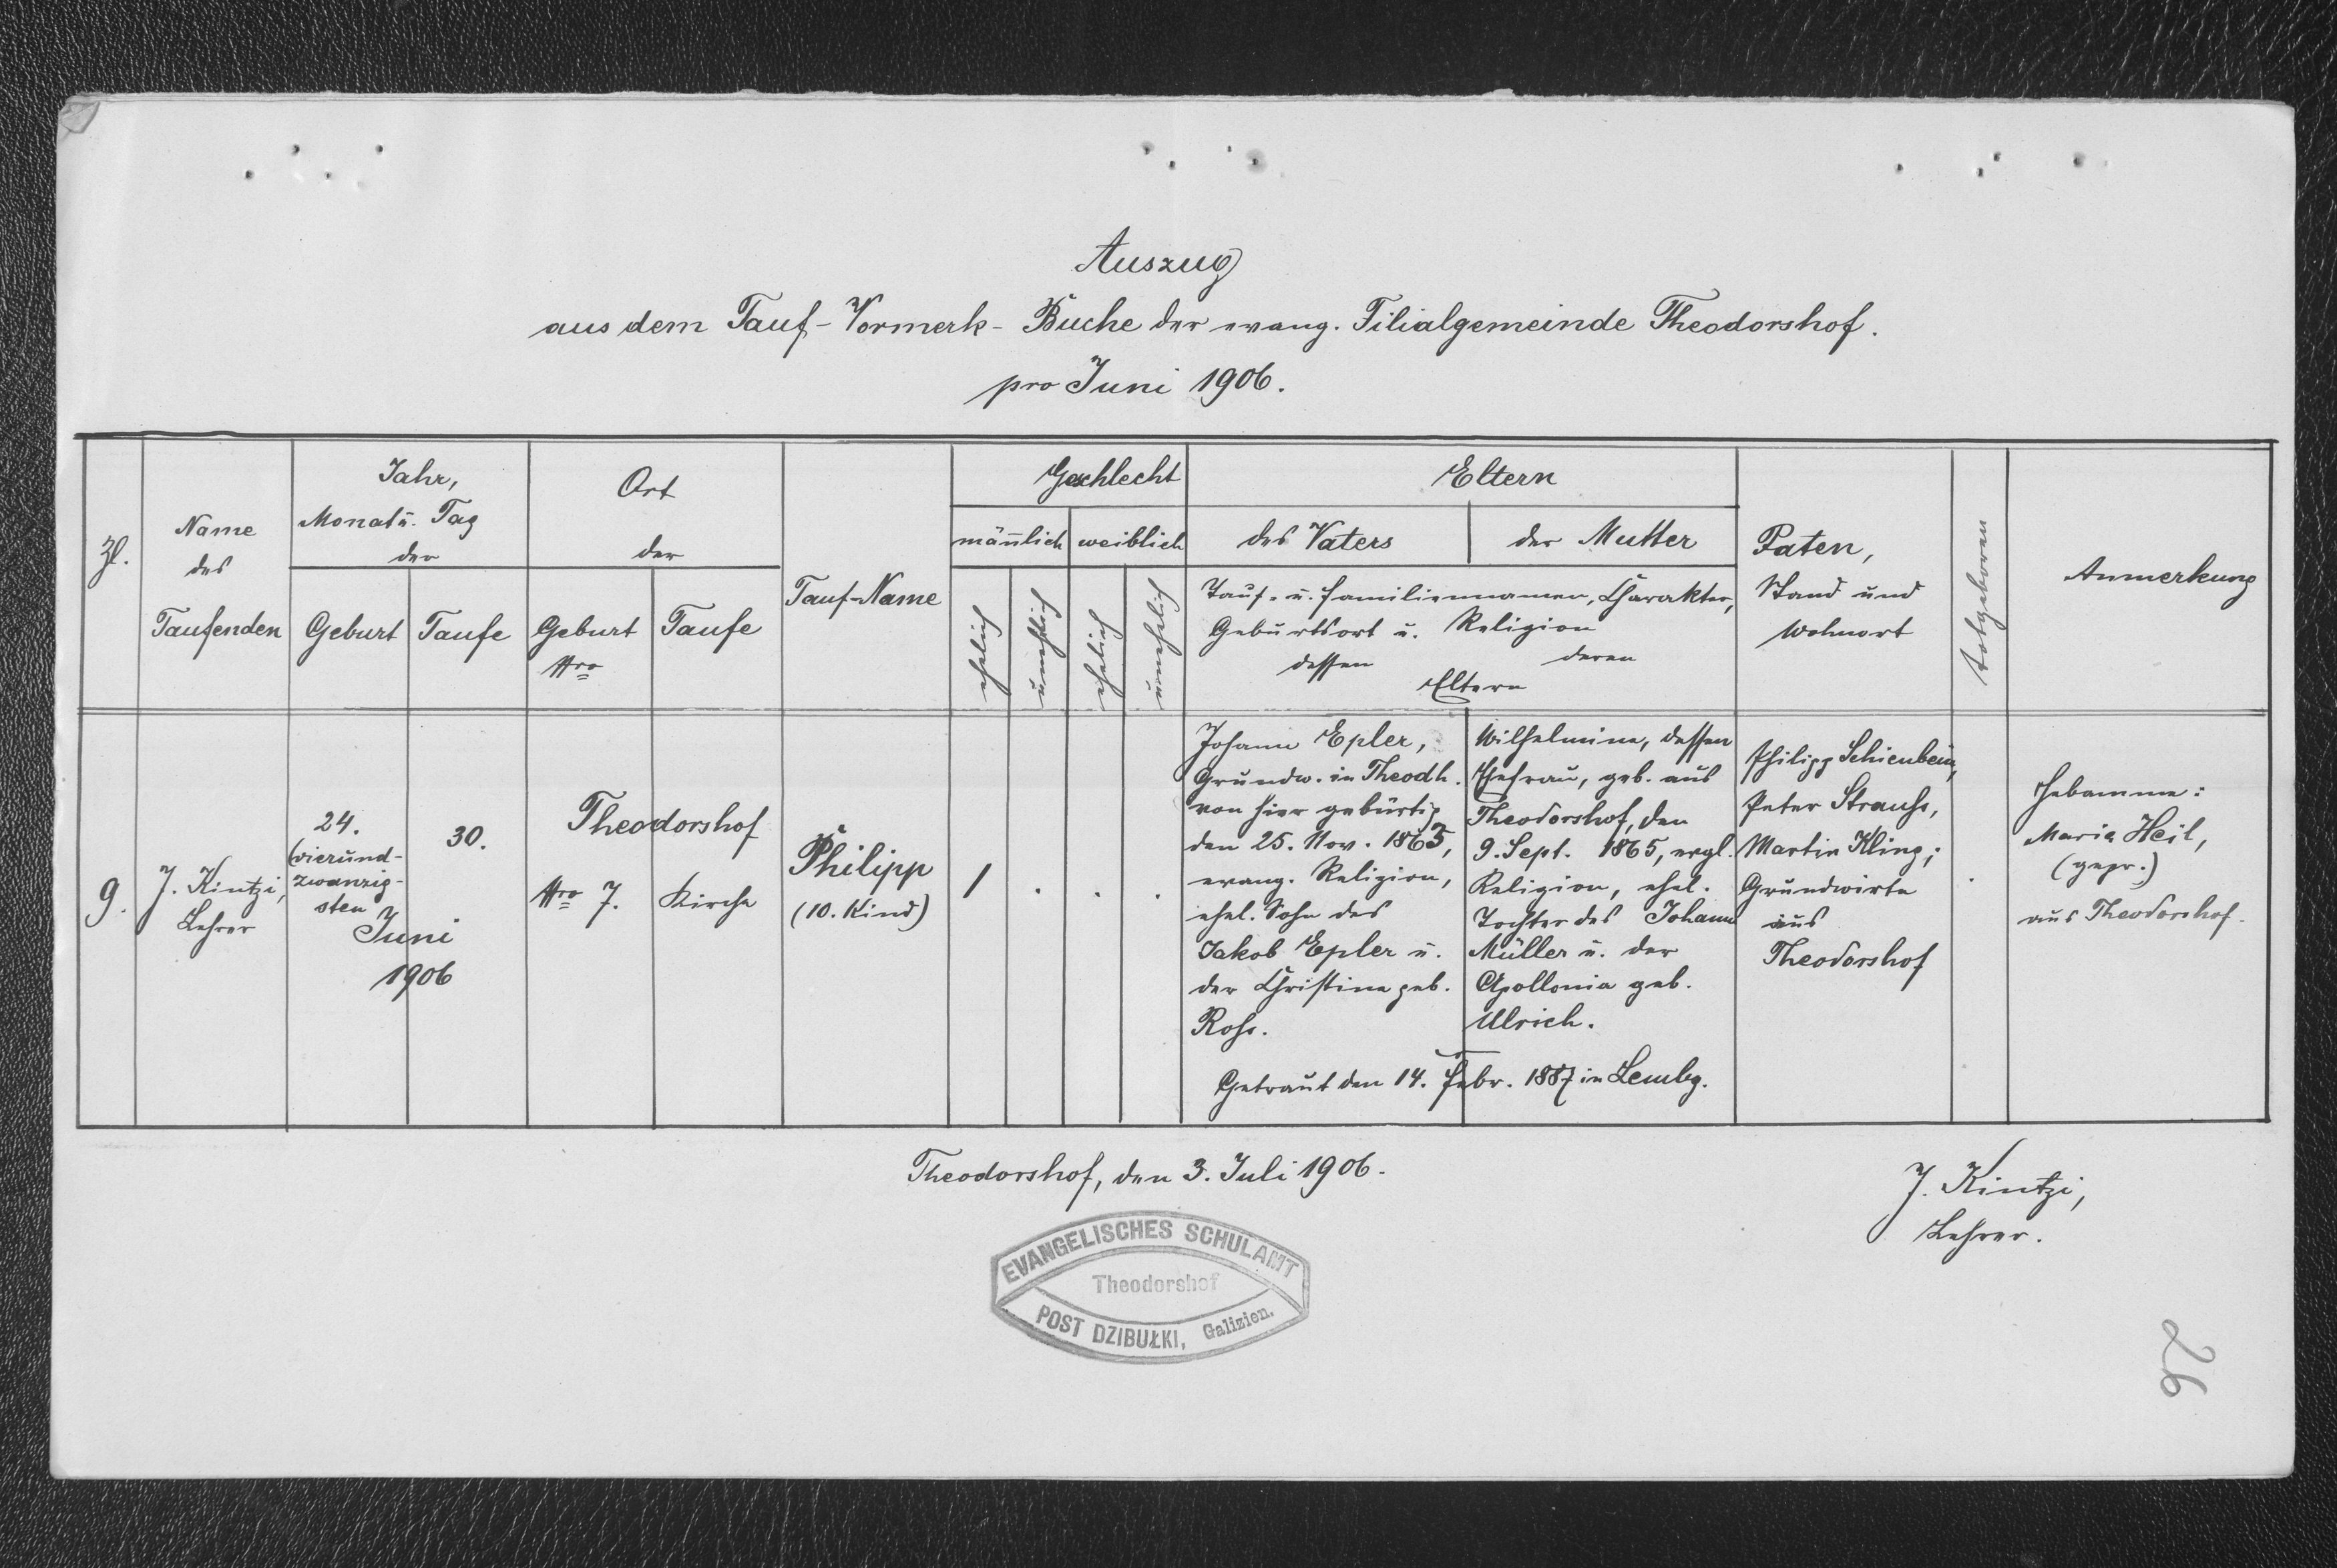 Auszug
aus dem Tauf-Vormerk-Buche der evang. Filialgemeinde Theodorshof.
pro Juni 1906.
Zl.
Name
des
Taufenden
Jahr,
Monat u. Tag
der
Geburt
Taufe
Ort
der
Geburt
Nro
Taufe
Tauf-Name
Geschlecht
männlich
weiblich
ehelich
unehelich
ehelich
unehelich
Eltern
des Vaters
der Mutter
Tauf- u. Familiennamen, Charakter,
Geburtsort u. Religion
dessen
deren
Eltern
Paten,
Stand und
Wohnort
totgeboren
Anmerkung
9.
J. Kintzi,
Lehrer
24.
(vierund-
zwanzig-
sten
30.
Juni
1906
Theodorshof
Nro 7.
Kirche
Philipp
(10. Kind)
1
.
.
.
Johann Epler,
Grundw. in Theodh.
von hier gebürtig
den 25. Nov. 1863,
evang. Religion,
ehel. Sohn des
Jakob Epler u.
der Christina geb.
Ross.
Wilhelmine, dessen
Ehefrau, geb. aus
Theodorshof, den
9. Sept. 1865, evgl.
Religion, ehel.
Tochter des Johann
Müller u. der
Apollonia geb.
Ulrich.
Getraut den 14. Febr. 1887 in Lembg.
Philipp Schienbein,
Peter Strauss,
Martin Kling;
Grundwirte
aus
Theodorshof
.
Hebamme:
Maria Heil,
(gepr.)
aus Theodorshof.
Theodorshof, den 3. Juli 1906.
J. Kintzi,
Lehrer.
EVANGELISCHES SCHULAMT
Theodorshof
POST DZIBUŁKI, Galizien.
26